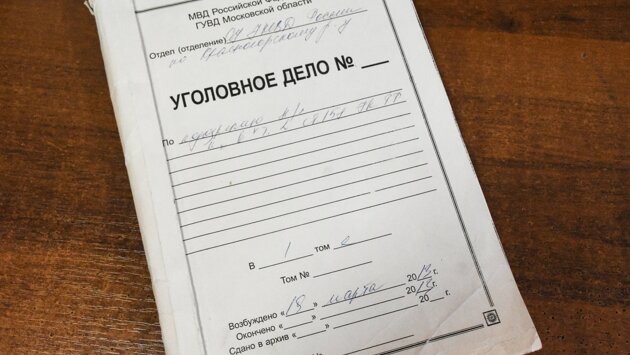 МВД Российской Фе
ГУВД Московской области
Отдел (отделение) России
по Красногорскому р-у
УГОЛОВНОЕ ДЕЛО №
По
В 1 том е
Том №
Возбуждено «18» марта 2013 г.
Окончено « » 2013 г.
Сдано в архив « » 20 г.